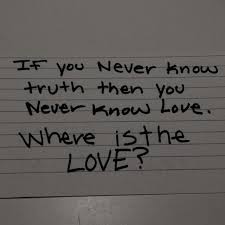 If you Never know
truth then you
Never know Love.
Where is the
LOVE?